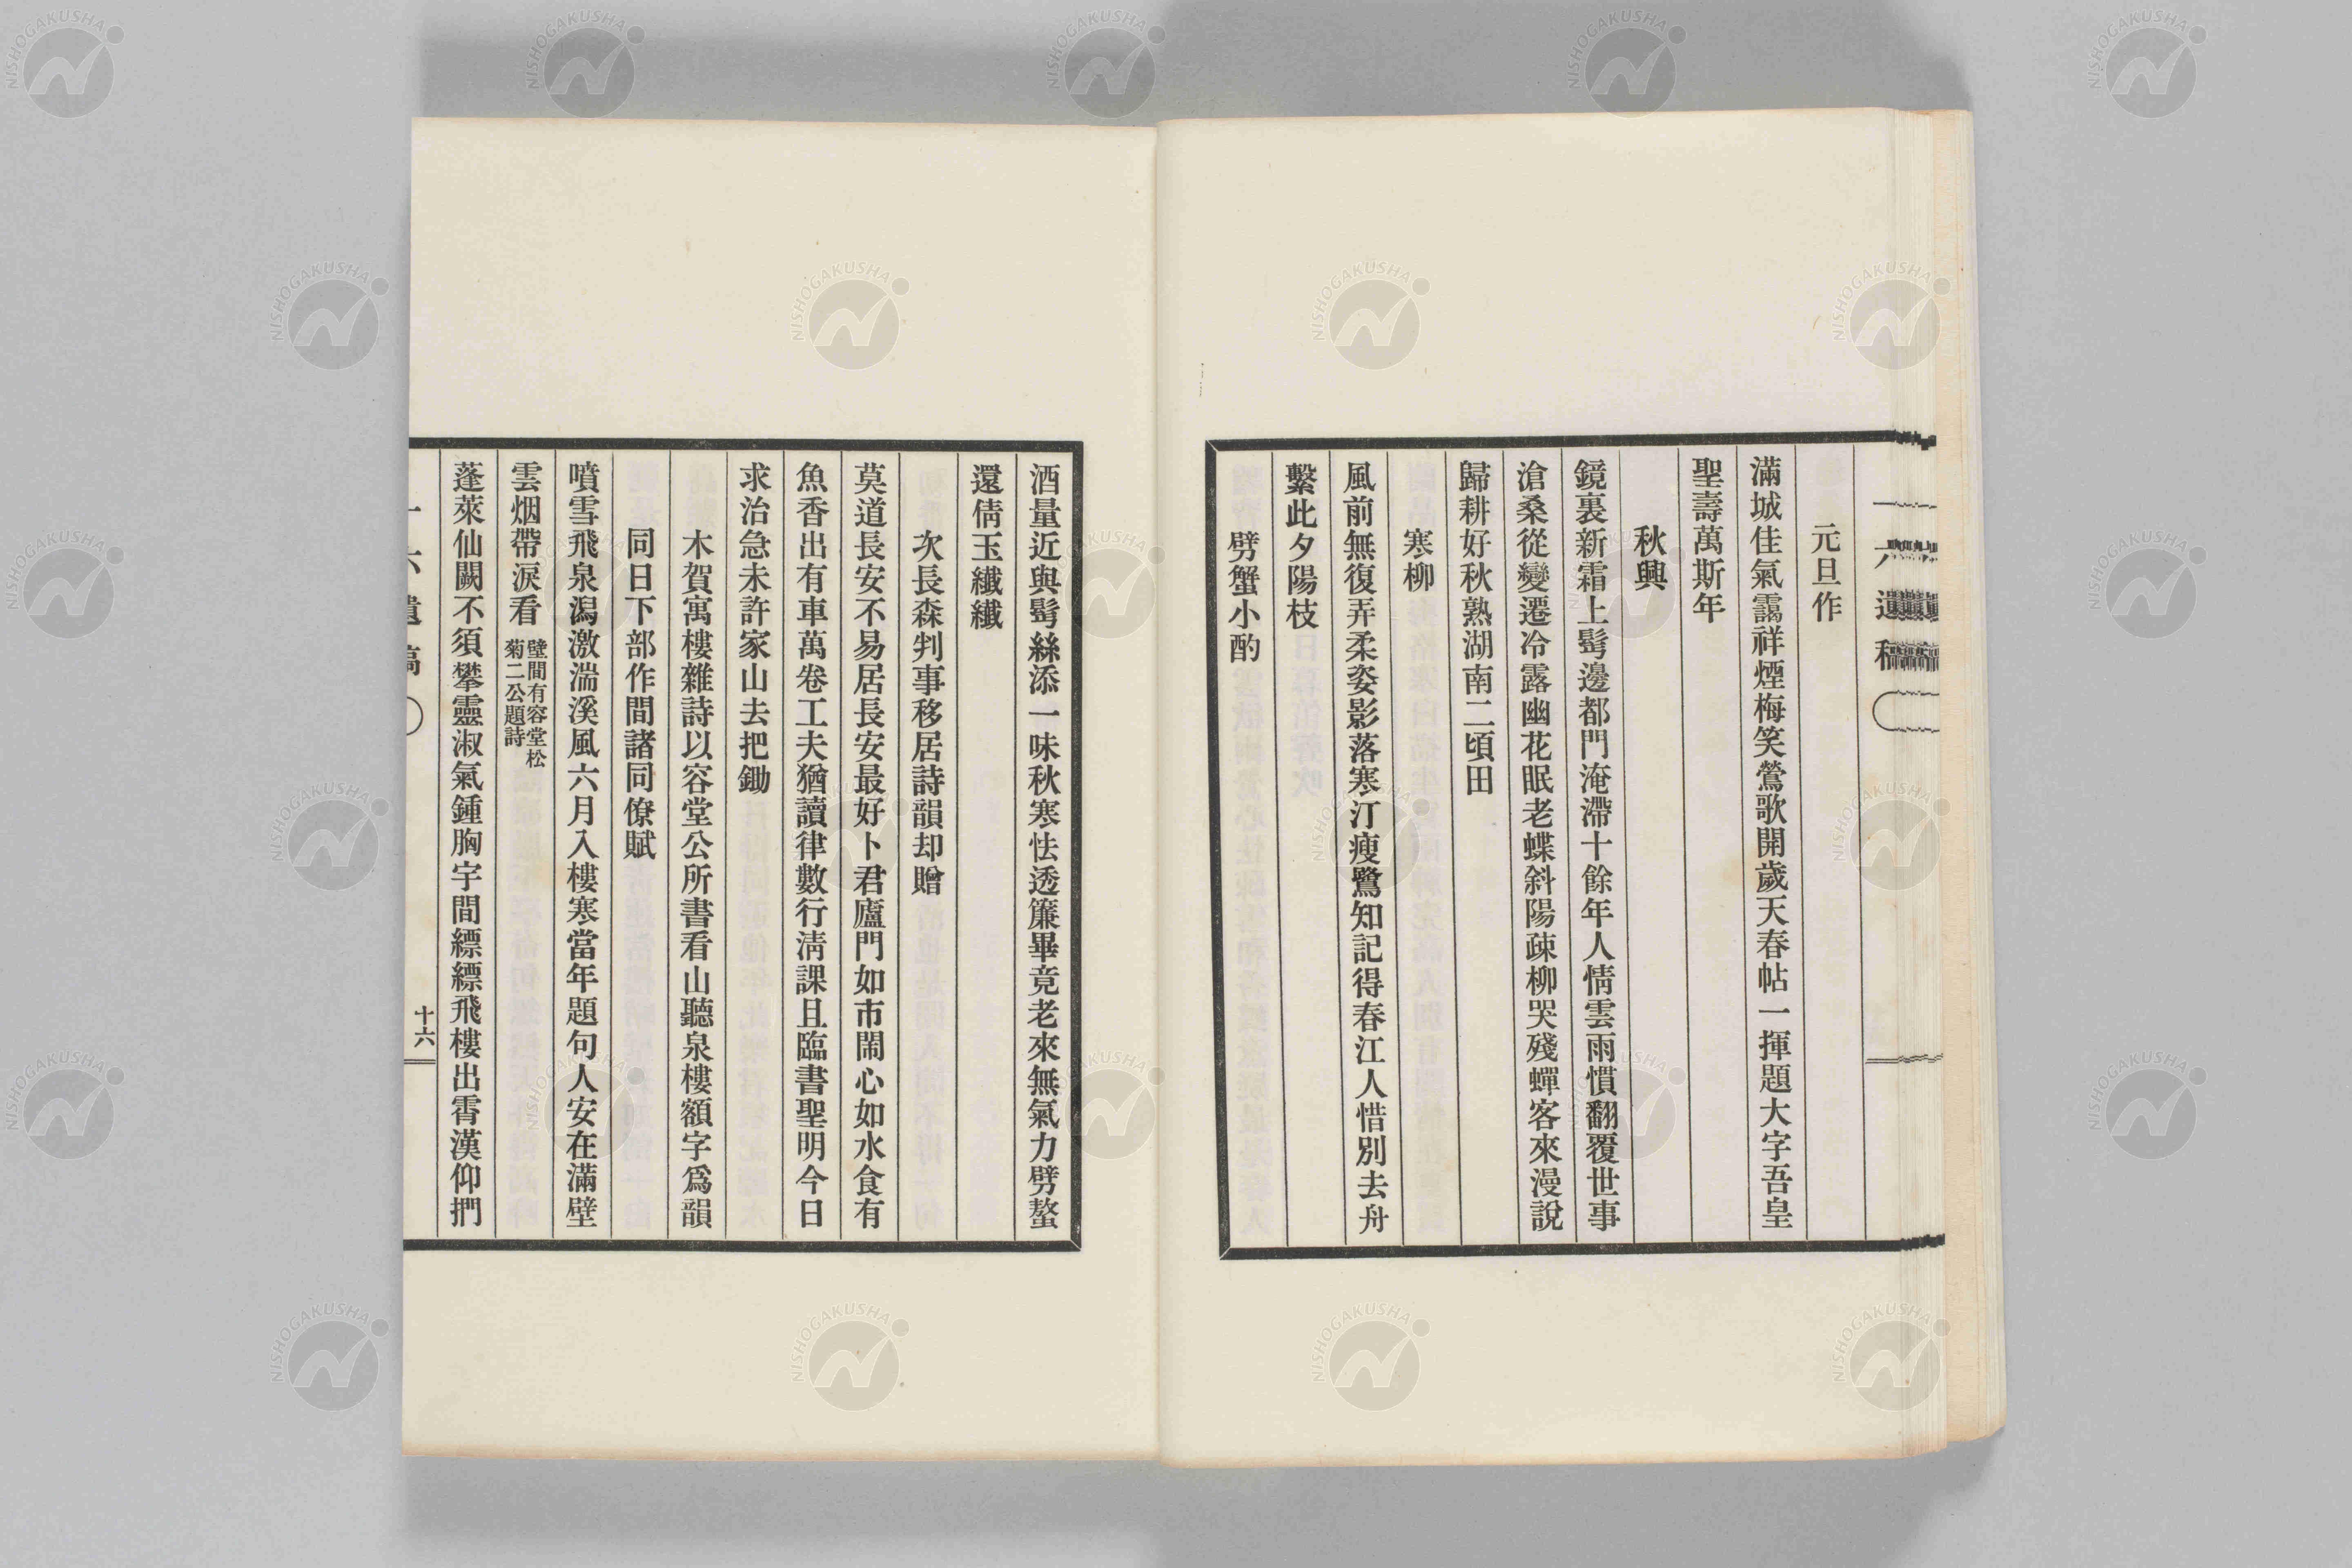 一六遺稿
元旦作
滿城佳氣靄祥煙梅笑鶯歌開歲天春帖一揮題大字吾皇
聖壽萬斯年
秋興
鏡裏新霜上髩邊都門淹滯十餘年人情雲雨慣翻覆世事
滄桑從變遷冷露幽花眠老蝶斜陽疎柳哭殘蟬客來漫說
歸耕好秋熟湖南二頃田
寒柳
風前無復弄柔姿影落寒汀瘦鷺知記得春江人惜別去舟
繫此夕陽枝
劈蟹小酌
酒量近與髩絲添一味秋寒怯透簾畢竟老來無氣力劈螯
還倩玉纖纖
次長森判事移居詩韻却贈
莫道長安不易居長安最好卜君廬門如市鬧心如水食有
魚香出有車萬卷工夫猶讀律數行淸課且臨書聖明今日
求治急未許家山去把鋤
木賀寓樓雜詩以容堂公所書看山聽泉樓額字爲韻
同日下部作間諸同僚賦
噴雪飛泉瀉激湍溪風六月入樓寒當年題句人安在滿壁
雲烟帶淚看 壁間有容堂松菊二公題詩
蓬萊仙闕不須攀靈淑氣鍾胸宇間縹縹飛樓出霄漢仰捫
一六遺稿
十六
NISHOGAKUSHA